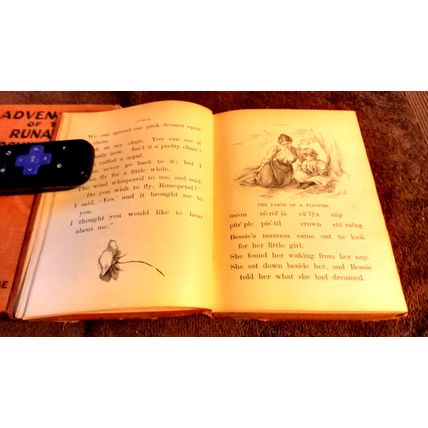 ADVEN
OF T
RUNA
We can spread our pink dresses upon
at my chair. You can see it
now. Isn't it a pretty chair?
called a sepal.
never go back to it; but I
fly for a little while.
The wind whispered to me, and said,
"Do you wish to fly, Rose-petal?"
I said, 'Yes,' and it brought me to
you.
I thought you would like to hear
about me."
THE PARTS OF A FLOWER.
co rol' la ca' lyx nap
pur' ple pis' til crown
Bessie's mamma came out to look
for her little girl.
She found her waking from her nap.
She sat down beside her, and Bessie
told her what she had dreamed.